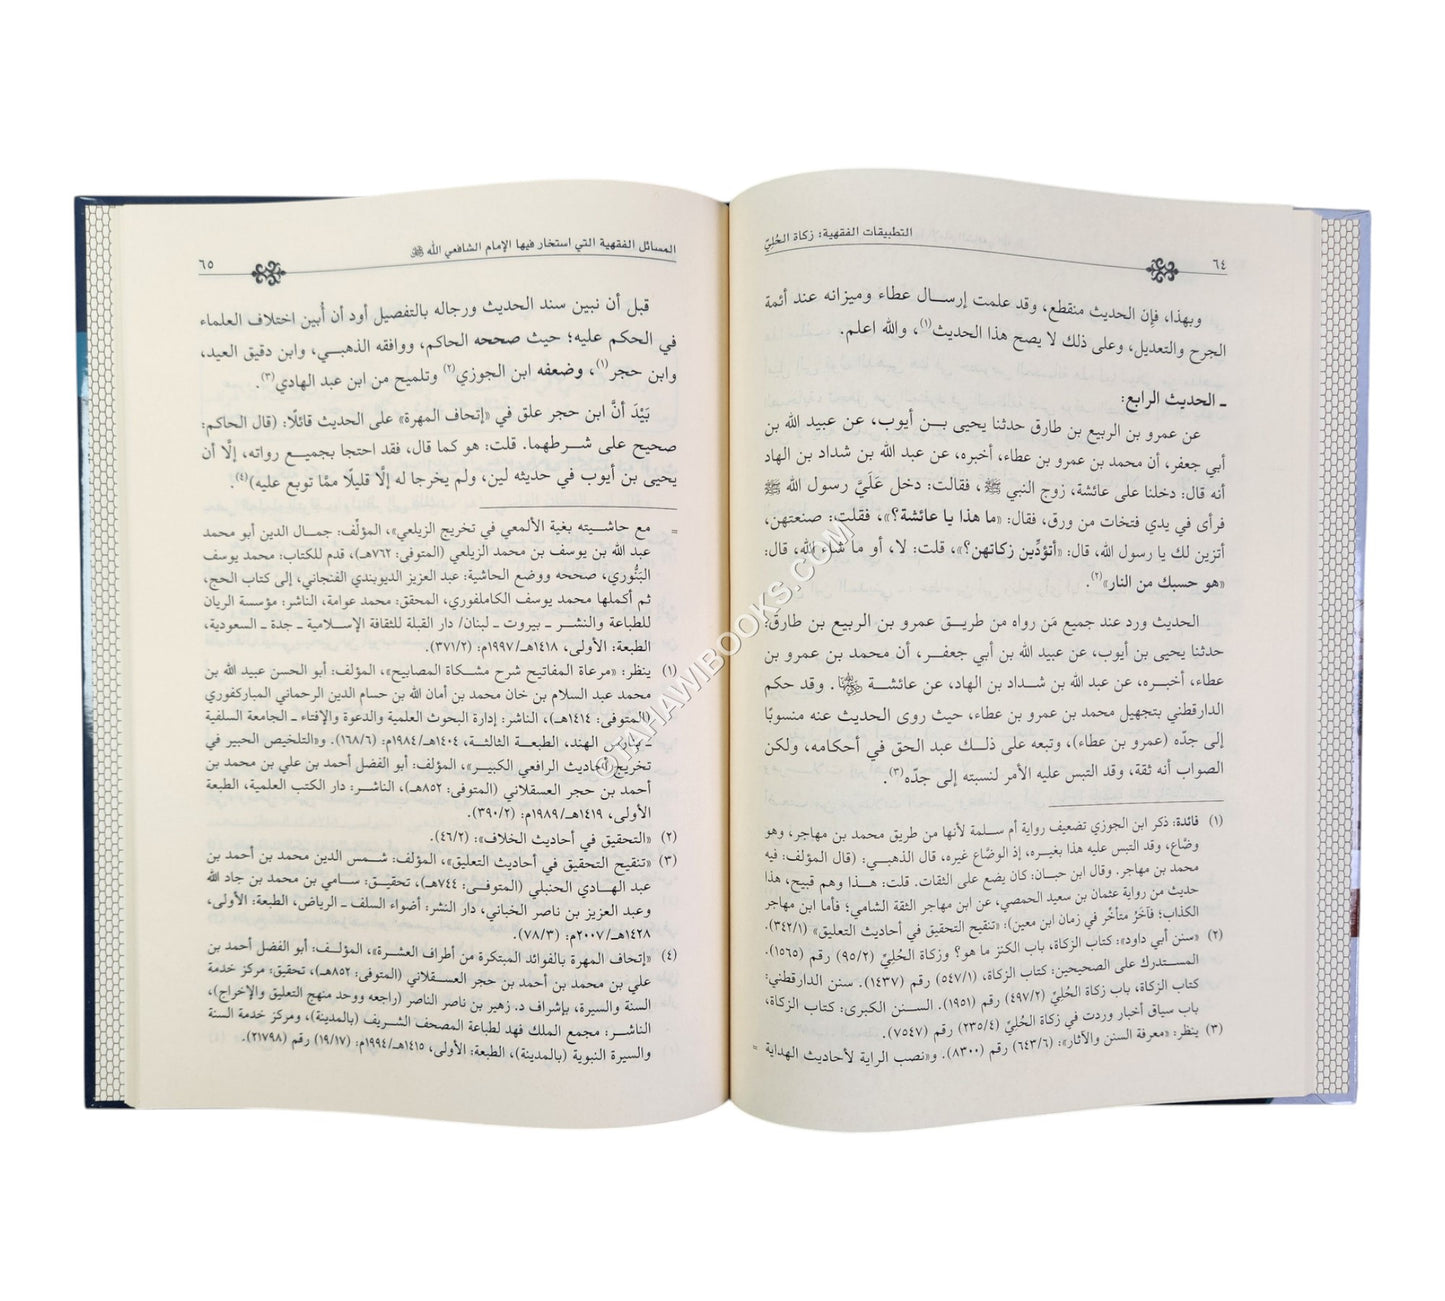 التطبيقات الفقهية: زكاة الحُليّ
٦٤
وبهذا، فإن الحديث منقطع، وقد علمت إرسال عطاء وميزانه عند أئمة
الجرح والتعديل، وعلى ذلك لا يصح هذا الحديث(١)، والله اعلم.
ـ الحديث الرابع:
عن عمرو بن الربيع بن طارق حدثنا يحيى بن أيوب، عن عبيد الله بن
أبي جعفر، أن محمد بن عمرو بن عطاء، أخبره، عن عبد الله بن شداد بن الهاد
أنه قال: دخلنا على عائشة، زوج النبي ﷺ، فقالت: دخل عَلَيَّ رسول الله ﷺ
فرأى في يدي فتخات من ورق، فقال: «ما هذا يا عائشة؟»، فقلت: صنعتهن،
أتزين لك يا رسول الله، قال: «أتؤدِّين زكاتهن؟»، قلت: لا، أو ما شاء الله، قال:
«هو حسبك من النار»(٢).
الحديث ورد عند جميع مَن رواه من طريق عمرو بن الربيع بن طارق:
حدثنا يحيى بن أيوب، عن عبيد الله بن أبي جعفر، أن محمد بن عمرو بن
عطاء، أخبره، عن عبد الله بن شداد بن الهاد، عن عائشة. وقد حكم
الدارقطني بتجهيل محمد بن عمرو بن عطاء، حيث روى الحديث عنه منسوبًا
إلى جدّه (عمرو بن عطاء)، وتبعه على ذلك عبد الحق في أحكامه، ولكن
الصواب أنه ثقة، وقد التبس عليه الأمر لنسبته إلى جدّه(٣).
(١) فائدة: ذكر ابن الجوزي تضعيف رواية أم سلمة لأنها من طريق محمد بن مهاجر، وهو
وضّاع، وقد التبس عليه هذا بغيره، إذ الوضّاع غيره، قال الذهبي: (قال المؤلف: فيه
محمد بن مهاجر. وقال ابن حبان: كان يضع على الثقات. قلت: هذا وهم قبيح، هذا
حديث من رواية عثمان بن سعيد الحمصي، عن ابن مهاجر الثقة الشامي؛ فأما ابن مهاجر
الكذاب؛ فآخَرُ متأخّر في زمان ابن معين): «تنقيح التحقيق في أحاديث التعليق» (٣٤٢/١).
(٢) «سنن أبي داود»: كتاب الزكاة، باب الكنز ما هو؟ وزكاة الحُليّ (٩٥/٢) رقم (١٥٦٥).
المستدرك على الصحيحين: كتاب الزكاة، (٥٤٧/١) رقم (١٤٣٧). سنن الدارقطني:
كتاب الزكاة، باب زكاة الحُليّ (٤٩٧/٢) رقم (١٩٥١). السنن الكبرى: كتاب الزكاة،
باب سياق أخبار وردت في زكاة الحُليّ (٢٣٥/٤) رقم (٧٥٤٧).
(٣) ينظر: «معرفة السنن والآثار»: (٦٤٣/٦) رقم (٨٣٠٠). و«نصب الراية لأحاديث الهداية =
المسائل الفقهية التي استخار فيها الإمام الشافعي الله
٦٥
قبل أن نبين سند الحديث ورجاله بالتفصيل أود أن أُبين اختلاف العلماء
في الحكم عليه؛ حيث صححه الحاكم، ووافقه الذهبي، وابن دقيق العيد،
وابن حجر(١)، وضعفه ابن الجوزي(٢) وتلميح من ابن عبد الهادي(٣).
بَيْدَ أنَّ ابن حجر علق في «إتحاف المهرة» على الحديث قائلًا: (قال الحاكم:
صحيح على شرطهما. قلت: هو كما قال، فقد احتجا بجميع رواته، إلَّا أن
يحيى بن أيوب في حديثه لين، ولم يخرجا له إلَّا قليلًا ممّا توبع عليه)(٤).
= مع حاشيته بغية الألمعي في تخريج الزيلعي»، المؤلّف: جمال الدين أبو محمد
عبد الله بن يوسف بن محمد الزيلعي (المتوفى: ٧٦٢هـ)، قدم للكتاب: محمد يوسف
البَنُّوري، صححه ووضع الحاشية: عبد العزيز الديوبندي الفنجاني، إلى كتاب الحج،
ثم أكملها محمد يوسف الكاملفوري، المحقق: محمد عوامة، الناشر: مؤسسة الريان
للطباعة والنشر ـ بيروت ـ لبنان/ دار القبلة للثقافة الإسلامية ـ جدة ـ السعودية،
الطبعة: الأولى، ١٤١٨هـ/١٩٩٧م: (٣٧١/٢).
(١) ينظر: «مرعاة المفاتيح شرح مشكاة المصابيح»، المؤلف: أبو الحسن عبيد الله بن
محمد عبد السلام بن خان محمد بن أمان الله بن حسام الدين الرحماني المباركفوري
(المتوفى: ١٤١٤هـ)، الناشر: إدارة البحوث العلمية والدعوة والإفتاء ـ الجامعة السلفية
ـ بنارس الهند، الطبعة الثالثة، ١٤٠٤هـ/١٩٨٤م: (١٦٨/٦). و«التلخيص الحبير في
تخريج أحاديث الرافعي الكبير»، المؤلف: أبو الفضل أحمد بن علي بن محمد بن
أحمد بن حجر العسقلاني (المتوفى: ٨٥٢هـ)، الناشر: دار الكتب العلمية، الطبعة
الأولى، ١٤١٩هـ/١٩٨٩م: (٣٩٠/٢).
(٢) «التحقيق في أحاديث الخلاف»: (٤٦/٢).
(٣) «تنقيح التحقيق في أحاديث التعليق»، المؤلف: شمس الدين محمد بن أحمد بن
عبد الهادي الحنبلي (المتوفى: ٧٤٤هـ)، تحقيق: سامي بن محمد بن جاد الله
وعبد العزيز بن ناصر الخباني، دار النشر: أضواء السلف ـ الرياض، الطبعة: الأولى،
١٤٢٨هـ/٢٠٠٧م: (٧٨/٣).
(٤) «إتحاف المهرة بالفوائد المبتكرة من أطراف العشرة»، المؤلف: أبو الفضل أحمد بن
علي بن محمد بن أحمد بن حجر العسقلاني (المتوفى: ٨٥٢هـ)، تحقيق: مركز خدمة
السنة والسيرة، بإشراف د. زهير بن ناصر الناصر (راجعه ووحد منهج التعليق والإخراج)،
الناشر: مجمع الملك فهد لطباعة المصحف الشريف (بالمدينة)، ومركز خدمة السنة
والسيرة النبوية (بالمدينة)، الطبعة: الأولى، ١٤١٥هـ/١٩٩٤م: (١٩/١٧) رقم (٢١٧٩٨).
©TAHAWIBOOKS.COM